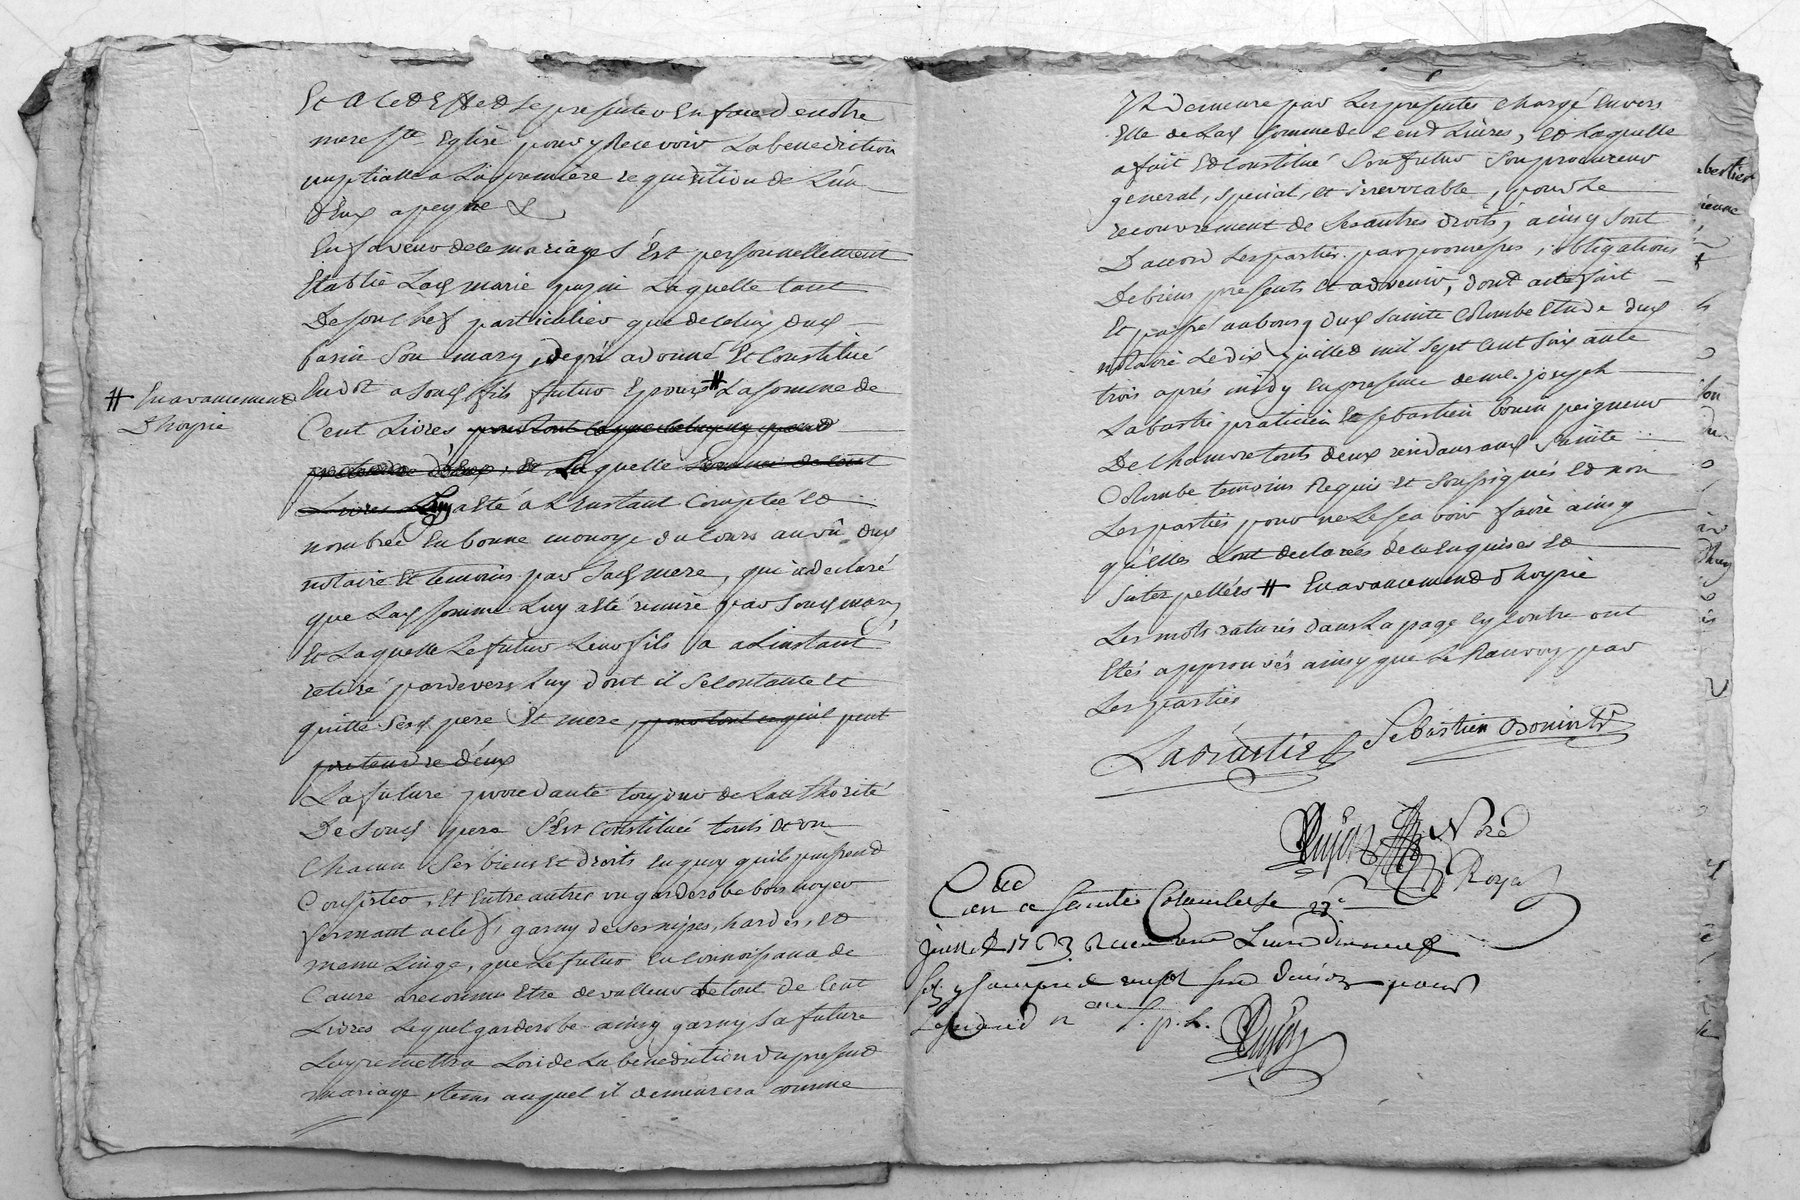 Et a cet Effet se presenter En face de nostre
mere Ste Eglise pour y Recevoir La benediction
nuptialle a La premiere requisition de L'un
d'Eux a peyne &
En faveur de ce mariage S'Est personnellement
Etablie Lad marie Laquelle tant
De son chef particulier que de celuy dud
Son mary, de gré a donné Et Constitué
En dot a soud fils futur Epoux # La somme de
# En avancement
D'hoyrie
Cent Livres pour tout ce que peut
pretendre d'Eux, Et Laquelle Somme de Cent
Livres Luy a Eté a L'Instant Comptée Et
nombrée En bonne monoye du Cours au vû dud
notaire Et temoins par Sad mere, qui a declaré
que Lad somme Luy a Eté remise par soud mary
Et Laquelle Le futur Leur fils a a Linstant
retiré pardevers Luy dont il Se contante Et
quitte Sesd pere Et mere, pour tout ce quil peut
pretendre d'eux
La future procedante toujour de Lauthorité
De soud pere S'Est Constituée touts et un
Chacun Ses biens Et droits En quoy quils puissent
Consister, Et Entre autres un garderobe bois noyer
fermant a clef, garny de Ses nipes, hardes, Et
menu Linge, que Le futur En Connoissance de
Cause a reconnu Etre de valleur de tout de Cent
Livres Lequel garderobe ainsy garny La future
Luy remettra Lors de La benediction du present
mariage, tems auquel il demeurera comme
Il demeure par Les presentes chargé Envers
Elle de Lad somme de Cent Livres, Et Laquelle
a fait Et Constitué Son futur Son procureur
general, special, et irrevocable, pour Le
recouvrement de Ses autres droits, ainsy sont
D'accord Les parties par promesses, obligations
De biens presents Et advenir, dont acte fait
Et passé au bourg dud Sainte Colombe Etude dud
notaire Le dix juillet mil Sept Cent Soixante
trois aprés midy En presence de me. joseph
Labastie praticien Et Sebastien bonin peigneur
De Chanvre touts deux residans aud Sainte
Colombe temoins Requis Et Soussignés Et non
Les parties pour ne Le Sçavoir faire ainsy
qu'elles L'ont declarées de ce Enquises Et
Interpellées # En avancement d'hoyrie
Les mots raturés dans La page cy contre ont
Etés approuvés ainsy que Le Ranvoy par
Les parties
Labastie Sebastien Bonin
Nore
Royal
Con a Sainte Colombe Le 22e
juillet 1763. Livre dix neuf